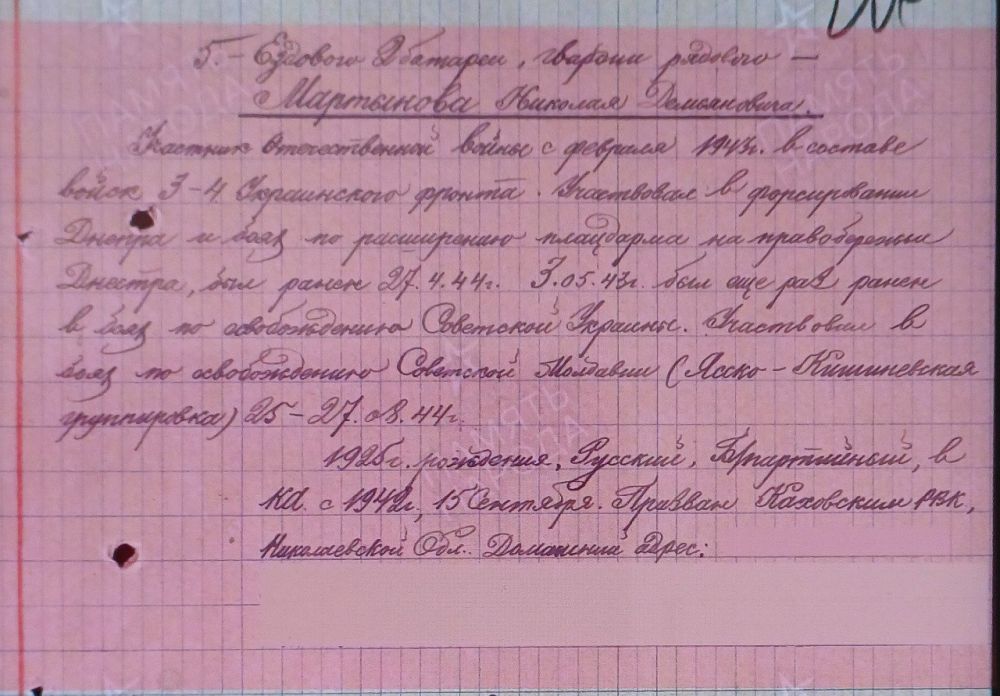 5. – Ездового 2 батареи, гвардии рядового –
Мартынова Николая Демьяновича.
Участник Отечественной войны с февраля 1943г. в составе
войск 3-4 Украинского фронта. Участвовал в форсировании
Днепра и боях по расширению плацдарма на правобережьи
Днестра, был ранен 27.4.44г. 3.05.43г. был еще раз ранен
в боях по освобождению Советской Украины. Участвовал в
боях по освобождению Советской Молдавии (Ясско-Кишиневская
группировка) 25-27.08.44г.
рождения, Русский, Б/партийный, в
КА с 1942г., 15 Сентября. Призван Каховским РВК,
Николаевской Обл. Домашний адрес:
ПАМЯТЬ НАРОДА
ПАМЯТЬ НАРОДА
ПАМЯТЬ НАРОДА